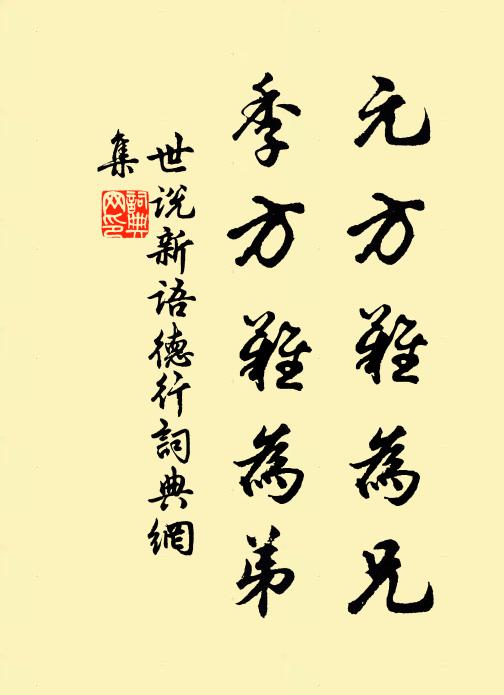 元方難為兄
季方難為弟
世說新語德行詞典網
集
詞典網印